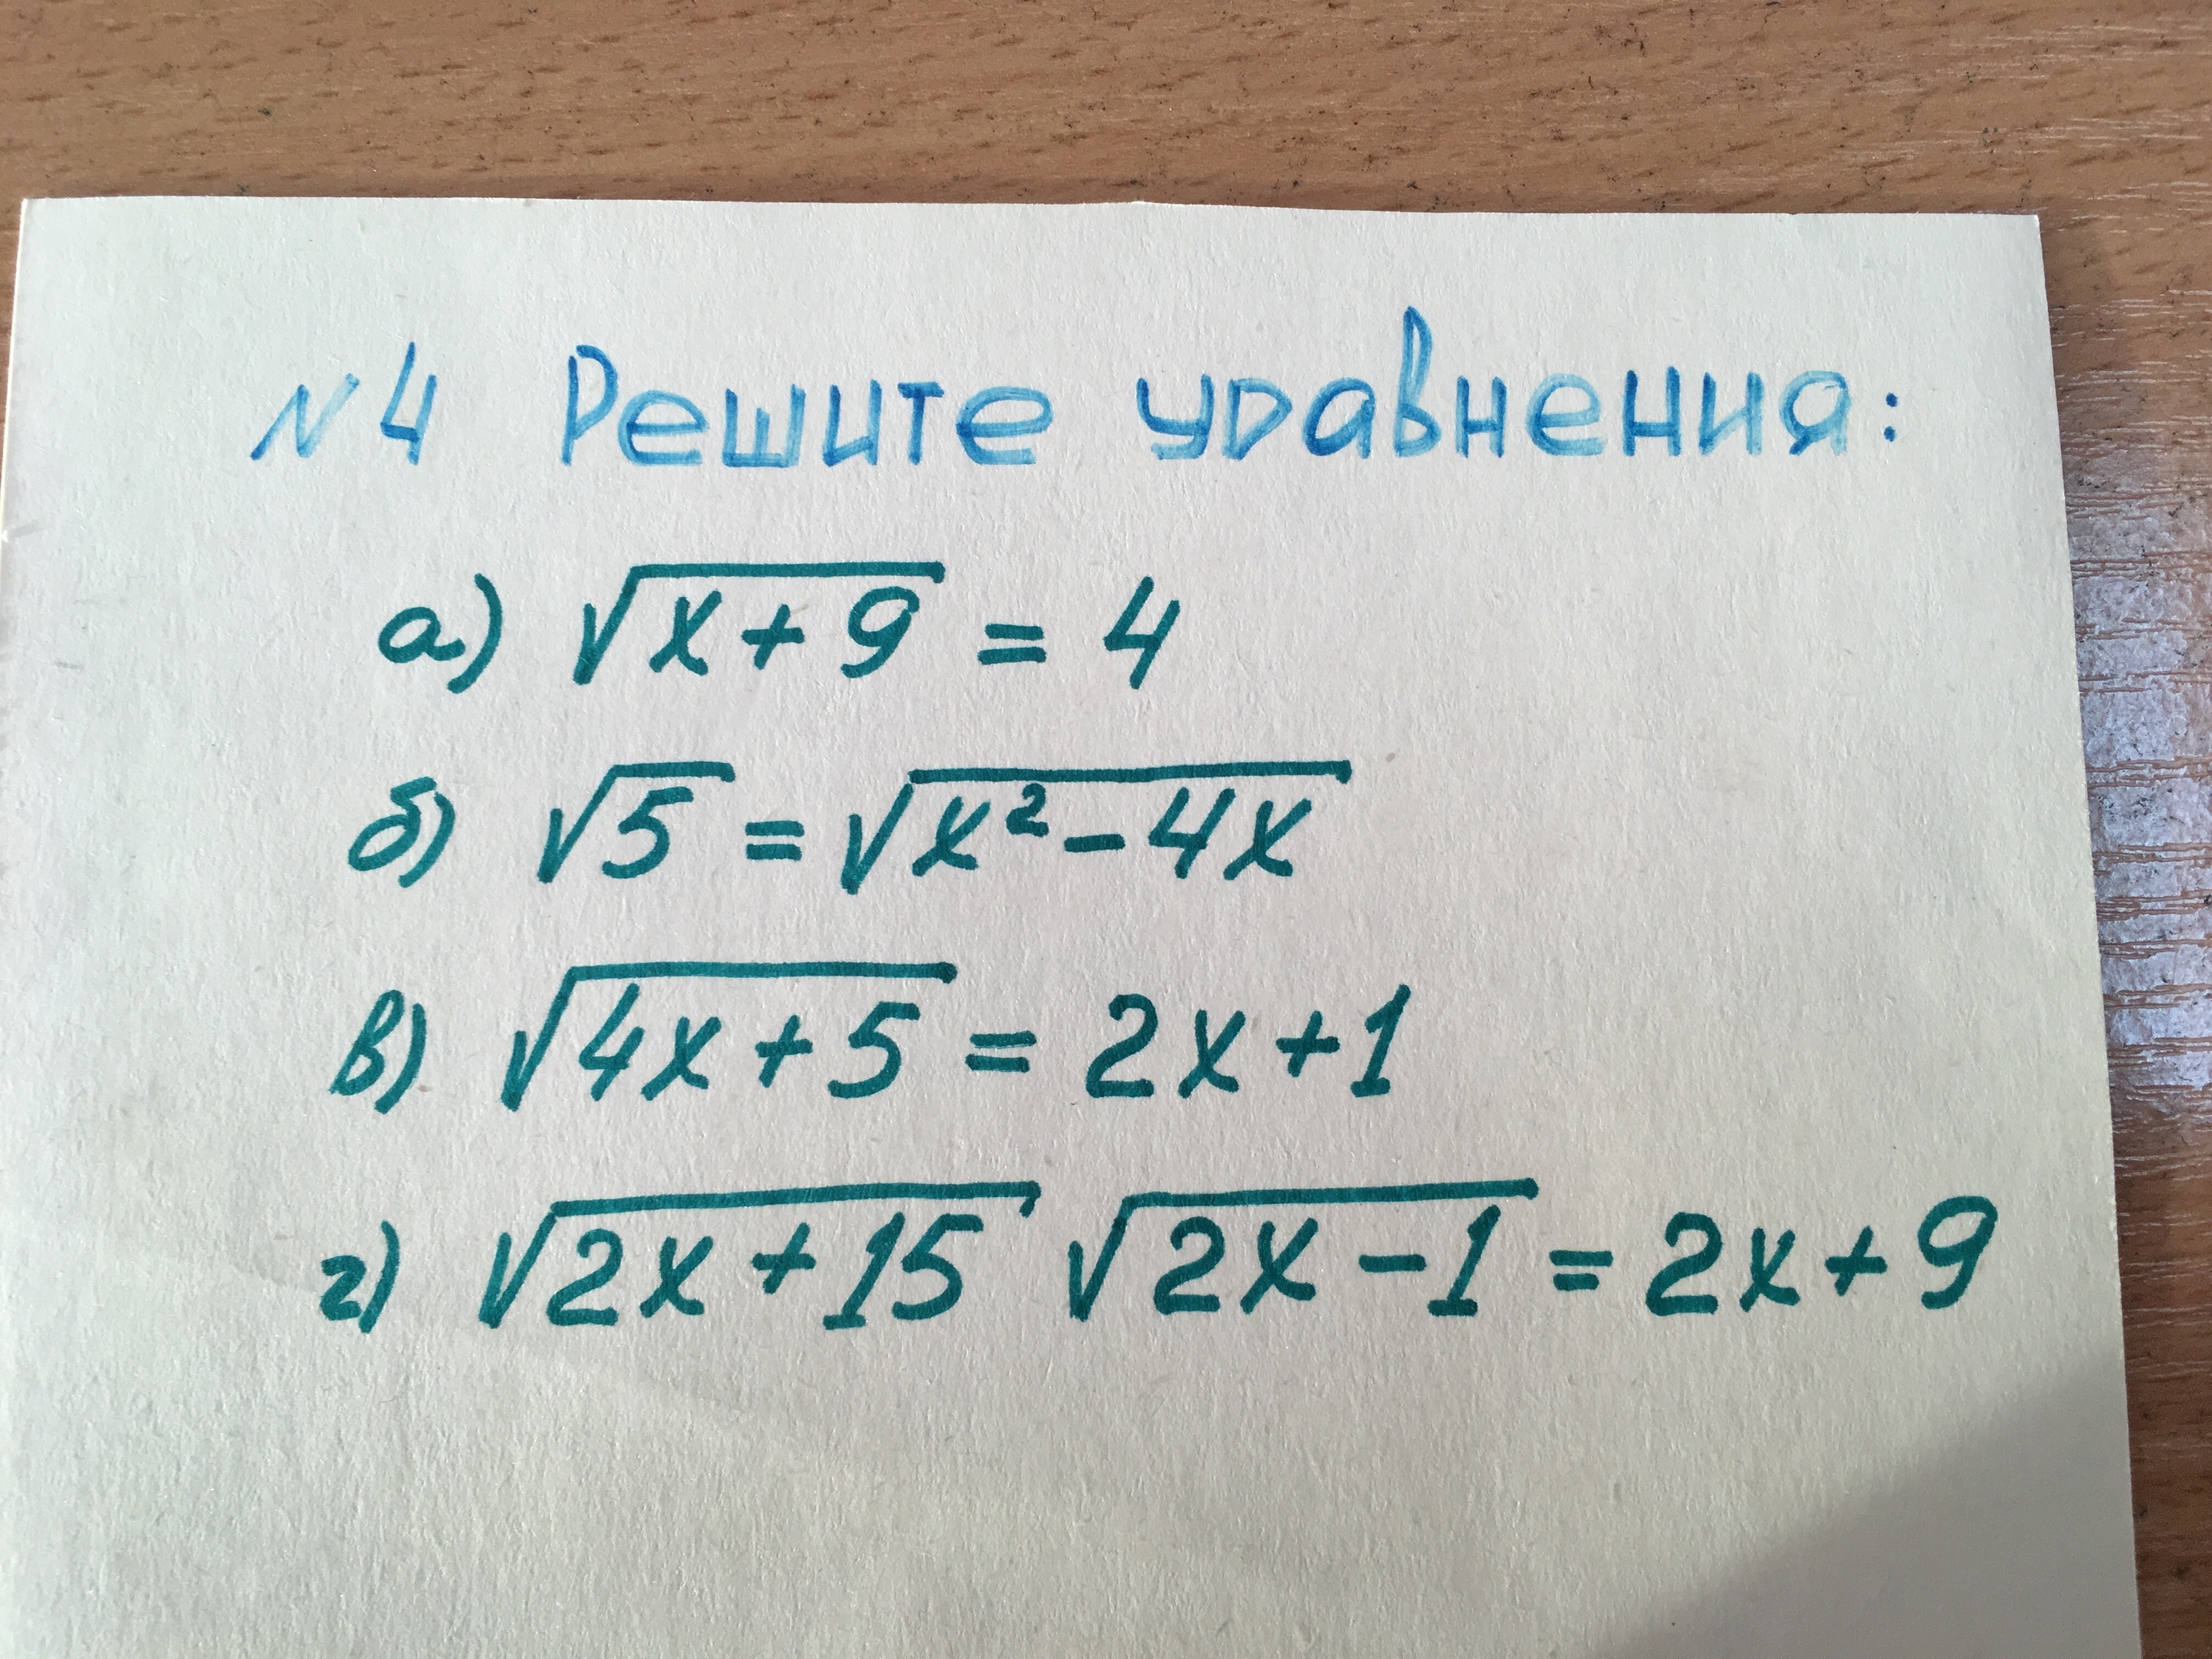 №4 Решите уравнения:
а) √(x+9) = 4
б) √5 = √(x²-4x)
в) √(4x+5) = 2x+1
г) √(2x+15) √(2x-1) = 2x+9